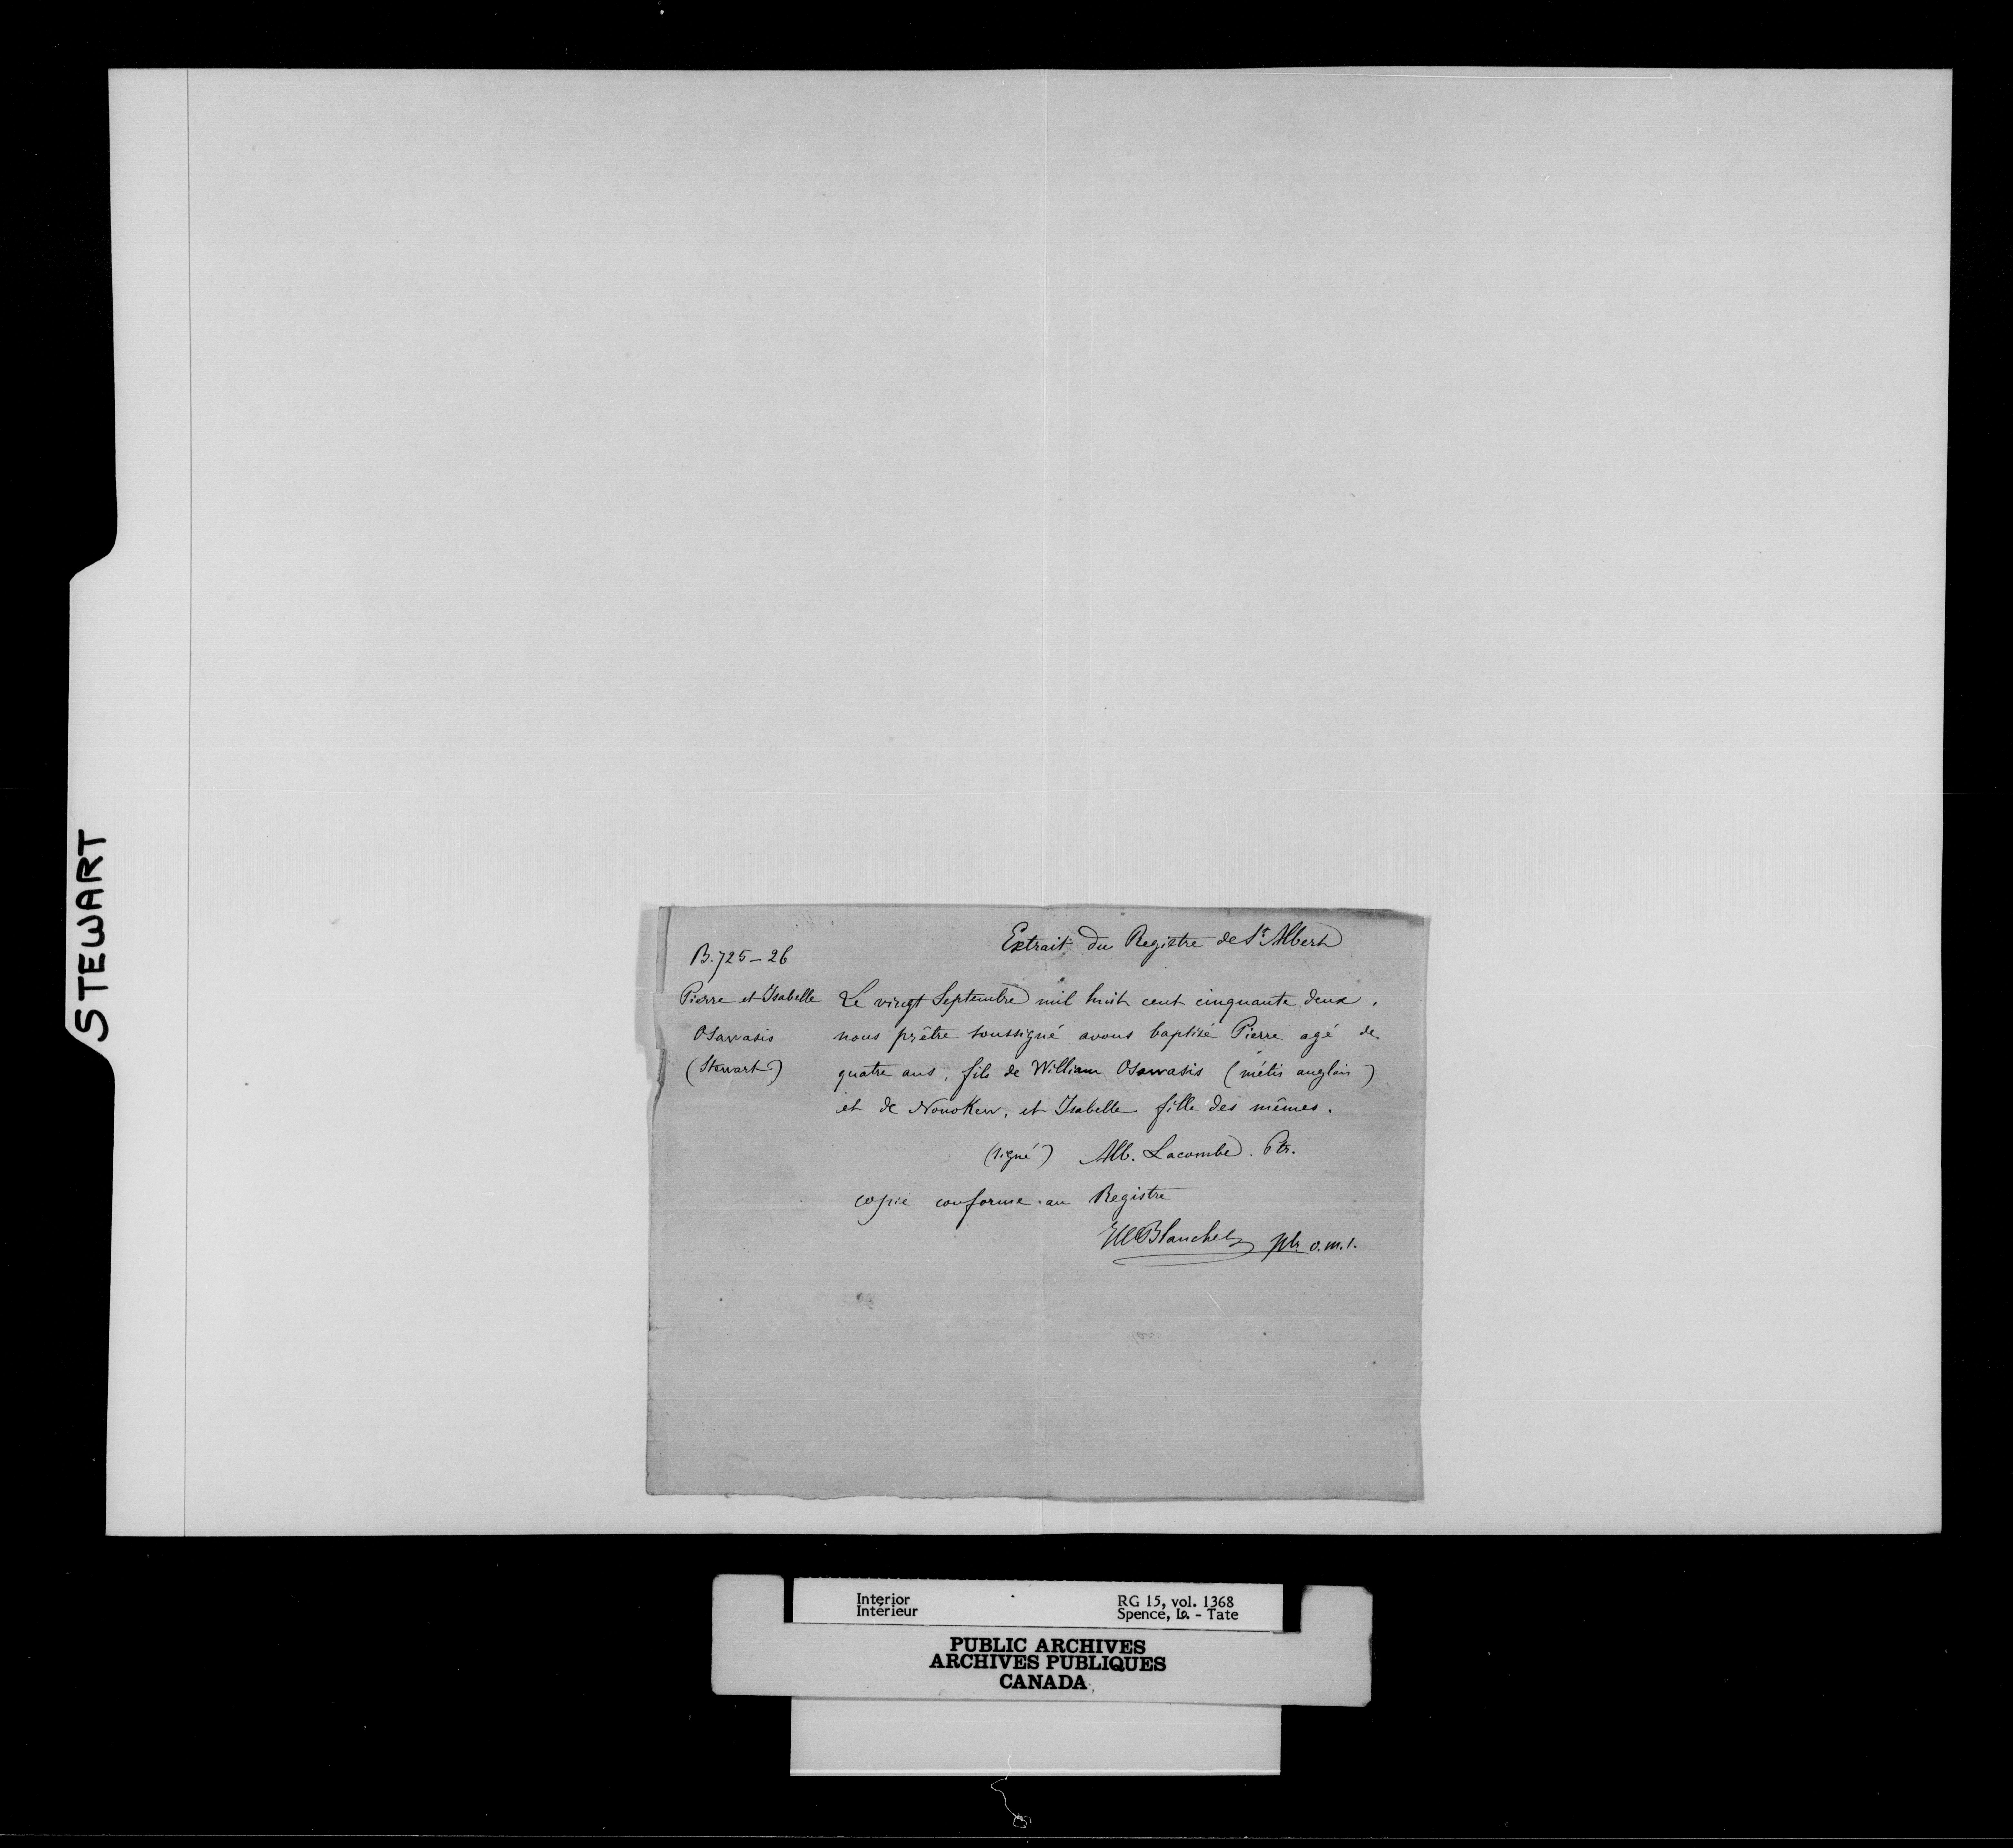 STEWART
Extrait du Registre de St Albert
B.725-26
Pierre et Isabelle
Osawasis
(Stewart)
Le vingt Septembre mil huit cent cinquante deux,
nous prêtre soussigné avons baptisé Pierre agé de
quatre ans, fils de William Osawasis (métis anglais)
et de Nonokew, et Isabelle fille des mêmes.
(signé) Alb. Lacombe. Ptr.
copie conforme au Registre
Blanchet ptr. o.m.i.
Interior
Intérieur
RG 15, vol. 1368
Spence, - Tate
PUBLIC ARCHIVES
ARCHIVES PUBLIQUES
CANADA